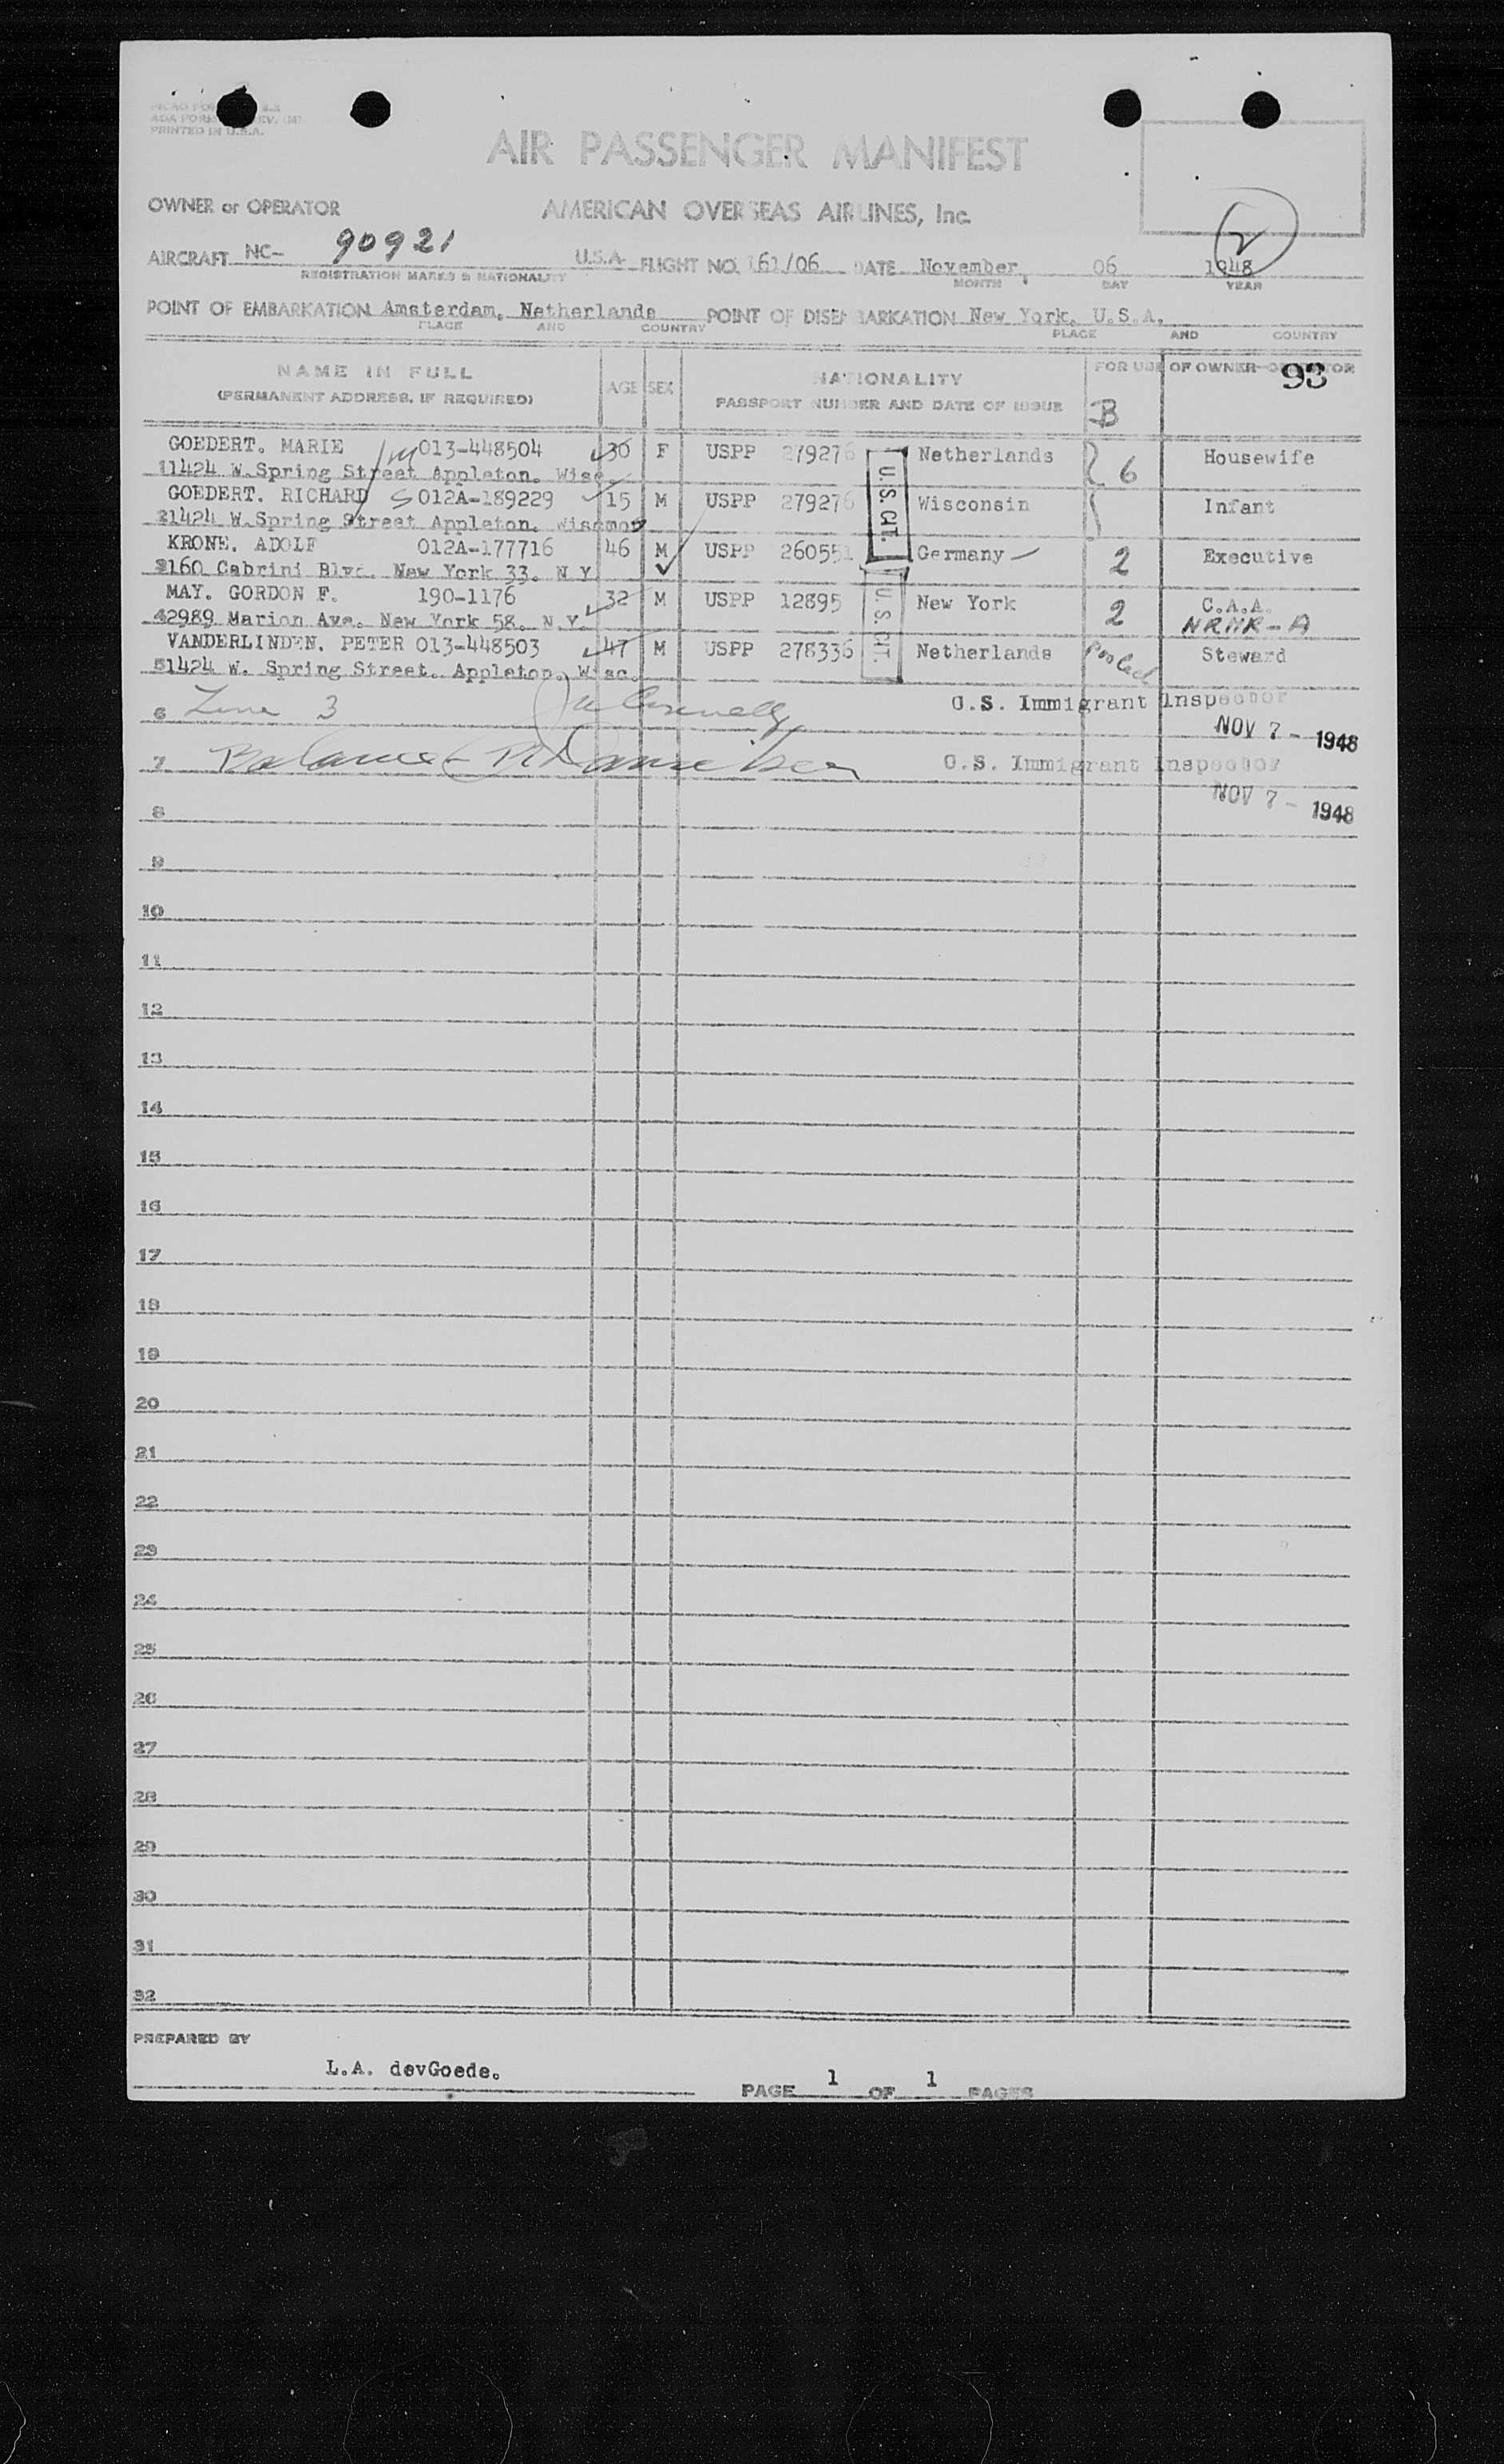 PRINTED IN U.S.A.
AIR PASSENGER MANIFEST
OWNER or OPERATOR AMERICAN OVERSEAS AIRLINES, Inc.
2
AIRCRAFT NC- 90921 U.S.A. FLIGHT NO. 161/06 DATE November, 06 1948
REGISTRATION MARKS & NATIONALITY MONTH DAY YEAR
POINT OF EMBARKATION Amsterdam, Netherlands POINT OF DISEMBARKATION New York, U.S.A.
PLACE AND COUNTRY PLACE AND COUNTRY
NAME IN FULL AGE SEX NATIONALITY FOR USE OF OWNER OPERATOR
93
(PERMANENT ADDRESS, IF REQUIRED) PASSPORT NUMBER AND DATE OF ISSUE B
GOEDERT. MARIE M 013-448504 30 F USPP 279276 Netherlands 6 Housewife
1 1424 W.Spring Street Appleton. Wisc.
GOEDERT. RICHARD S 012A-189229 15 M USPP 279276 U.S. CIT. Wisconsin Infant
2 1424 W.Spring Street Appleton. Wisc mos
KRONE. ADOLF 012A-177716 46 M USPP 260551 Germany 2 Executive
3 160 Cabrini Blvd. New York 33. N.Y.
MAY. GORDON F. 190-1176 32 M USPP 12895 U.S. CIT. New York 2 C.A.A.
4 2989 Marion Ave. New York 58. N.Y. NRMR-A
VANDERLINDEN. PETER 013-448503 47 M USPP 278336 Netherlands Steward
5 1424 W. Spring Street. Appleton. Wisc.
6 Line 3 U.S. Immigrant Inspector
NOV 7 - 1948
7 Balance U.S. Immigrant Inspector
NOV 7 - 1948
8
9
10
11
12
13
14
15
16
17
18
19
20
21
22
23
24
25
26
27
28
29
30
31
32
PREPARED BY
L.A. devGoede.
PAGE 1 OF 1 PAGES